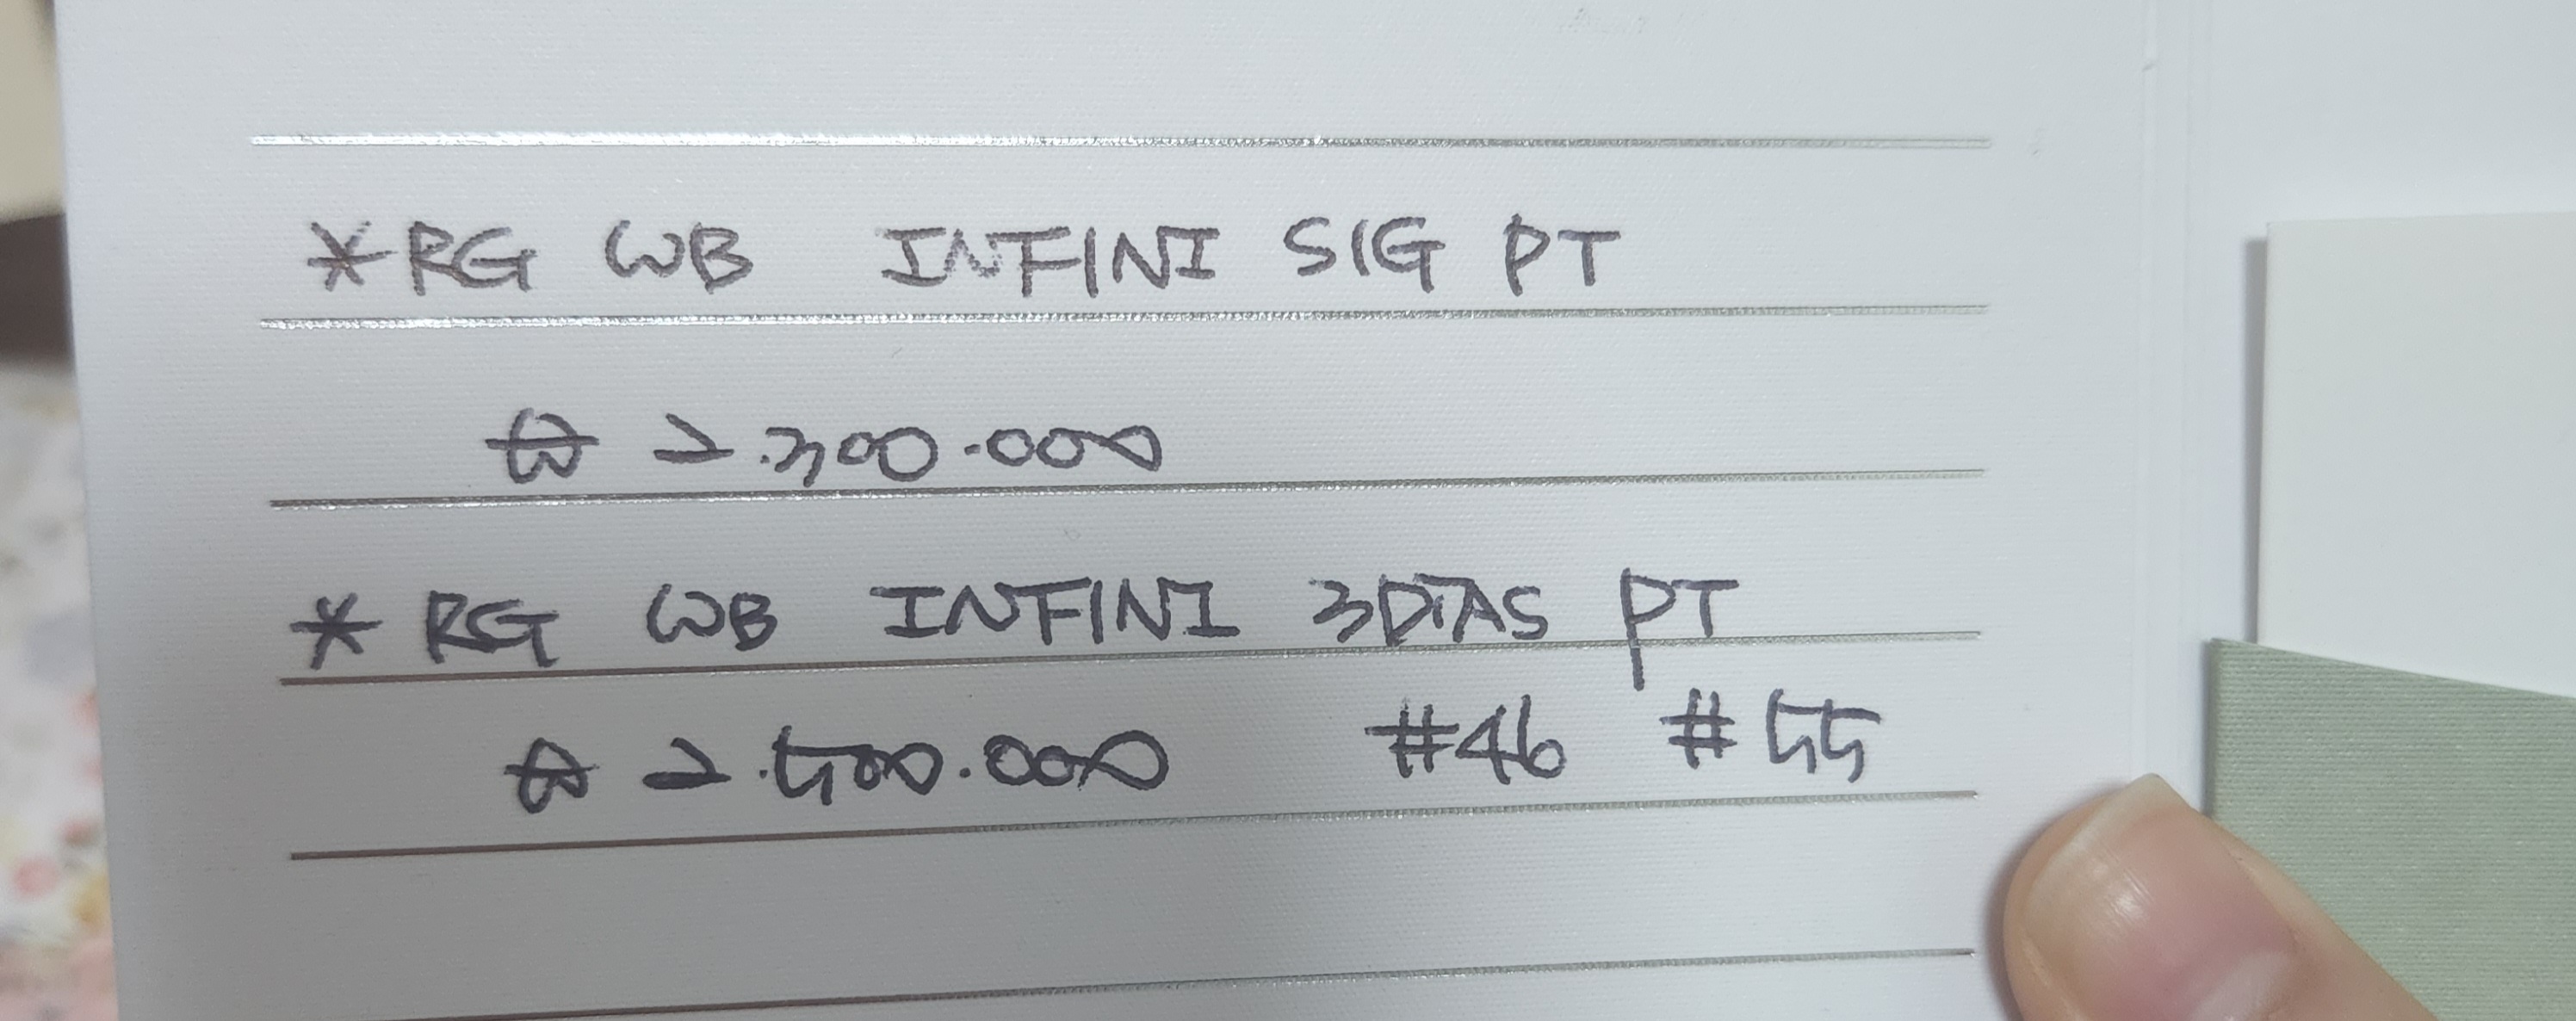 *RG WB INFINI SIG PT
₩ 2.300.000
* RG WB INFINI 3DIAS PT
₩ 2.500.000 #46 #55